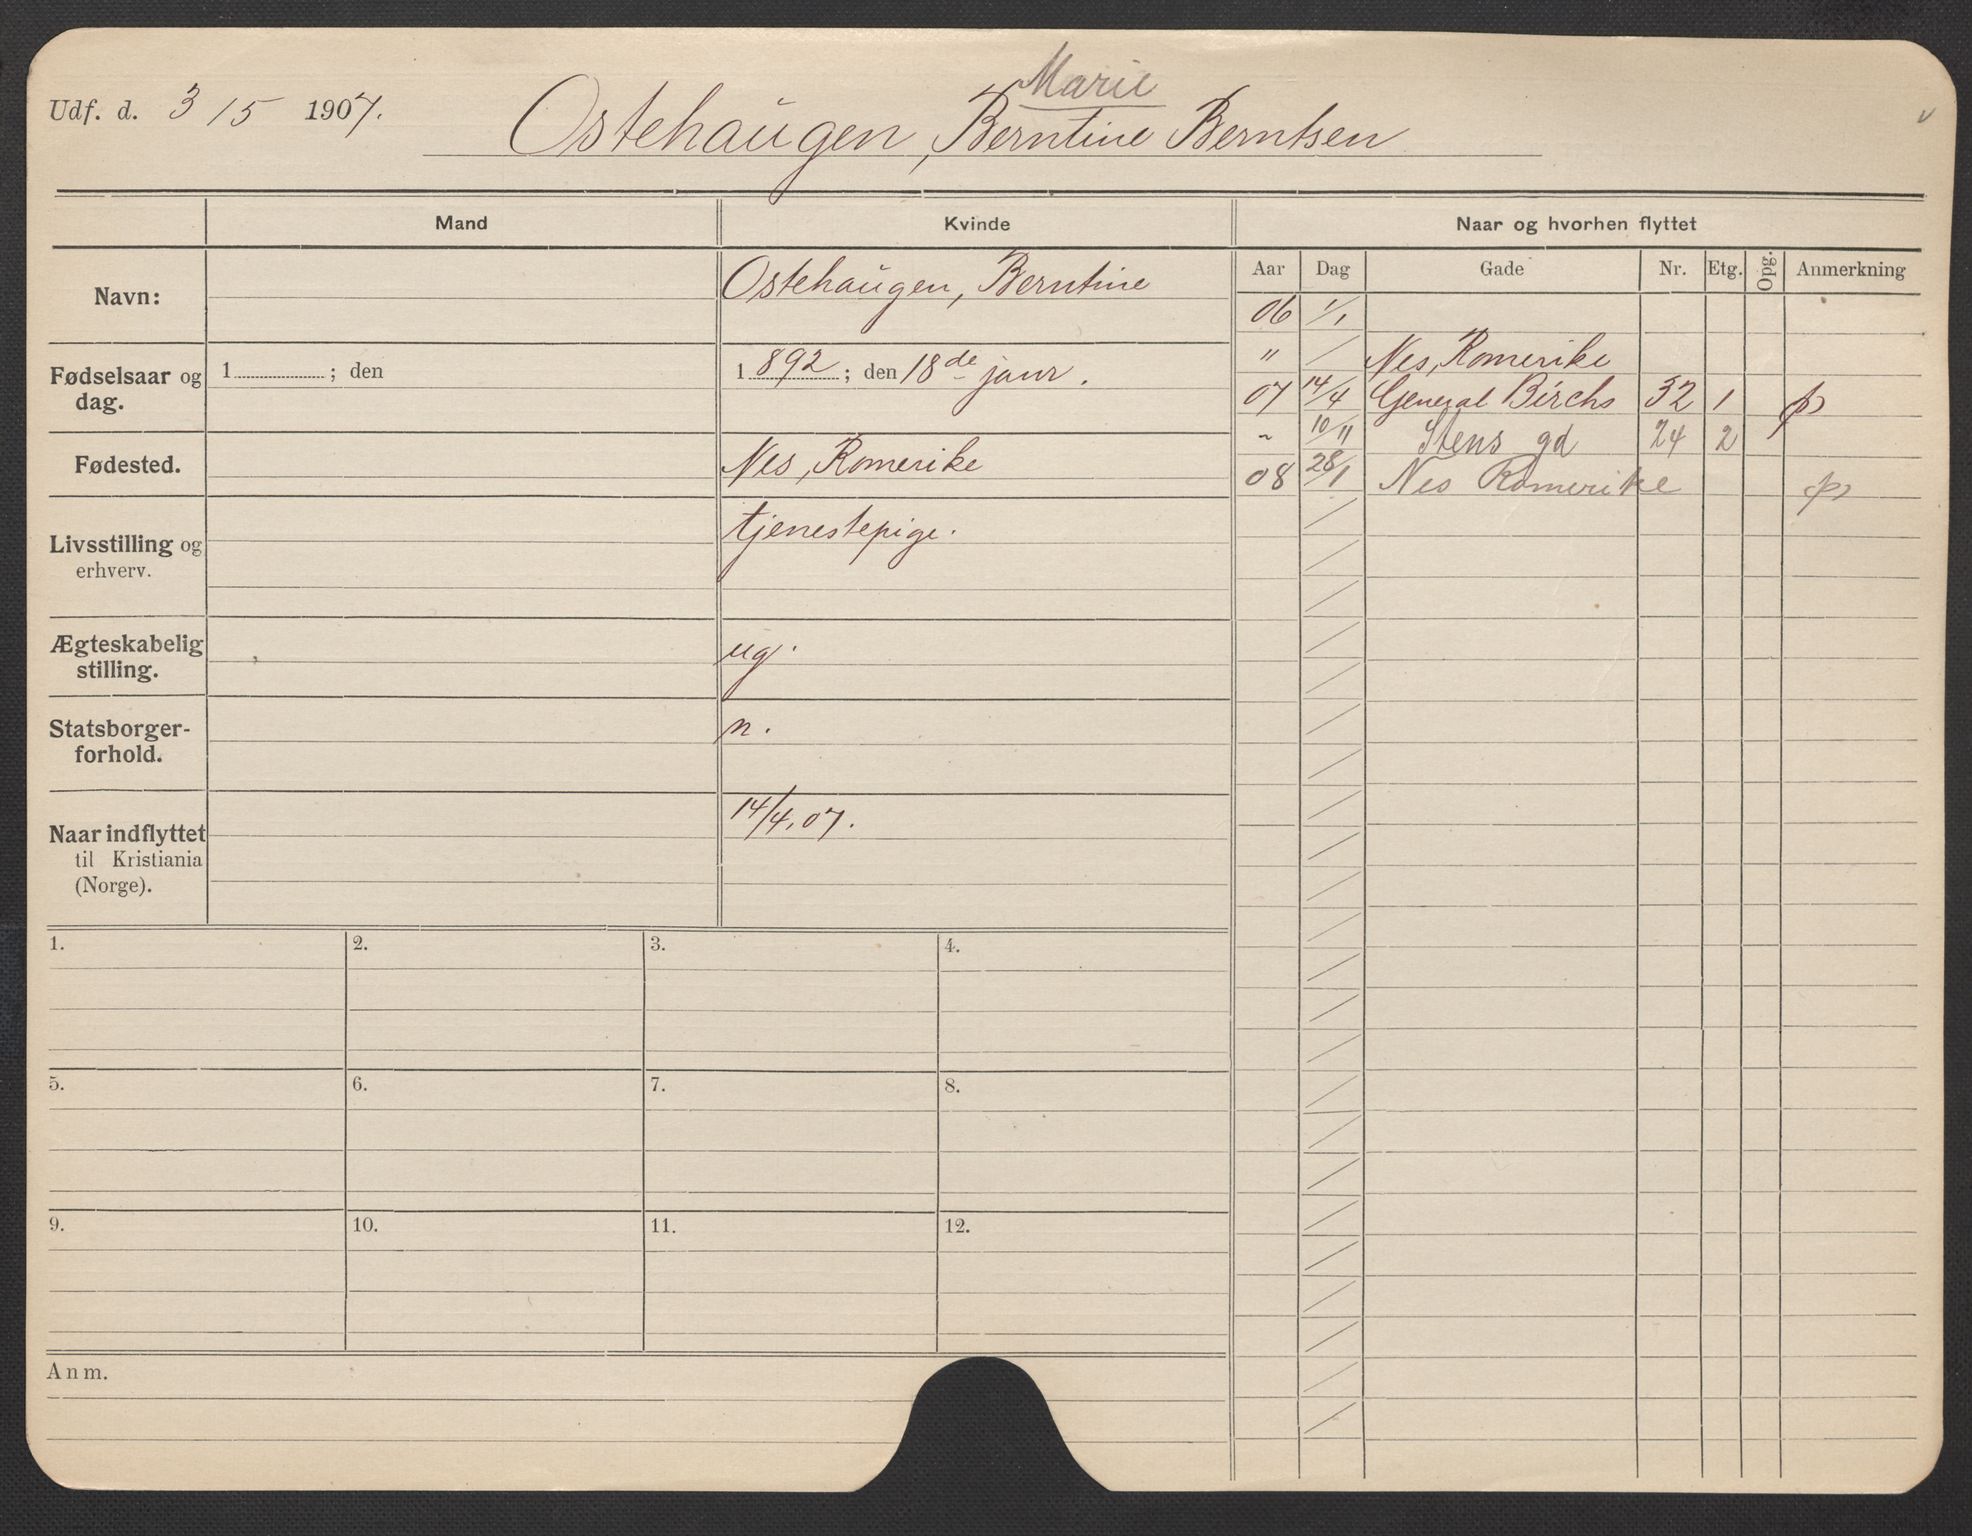 Udf. d. 3/5 1907.
Marie
Ostehaugen, Berntine Berntsen
Mand Kvinde Naar og hvorhen flyttet
Aar Dag Gade Nr. Etg. Opg. Anmerkning
Navn: Ostehaugen, Berntine
Fødselsaar og dag. 1 ; den 1892 ; den 18de janr.
Fødested. Nes, Romerike
Livsstilling og erhverv. tjenestepige.
Ægteskabelig stilling. ug.
Statsborgerforhold. n.
Naar indflyttet til Kristiania (Norge). 14/4.07.
06 1/1
" / Nes, Romerike
07 14/4 General Birchs 32 1 p
" 10/11 Stens gd 24 2
08 28/1 Nes Romerike p
1. 2. 3. 4.
5. 6. 7. 8.
9. 10. 11. 12.
Anm.